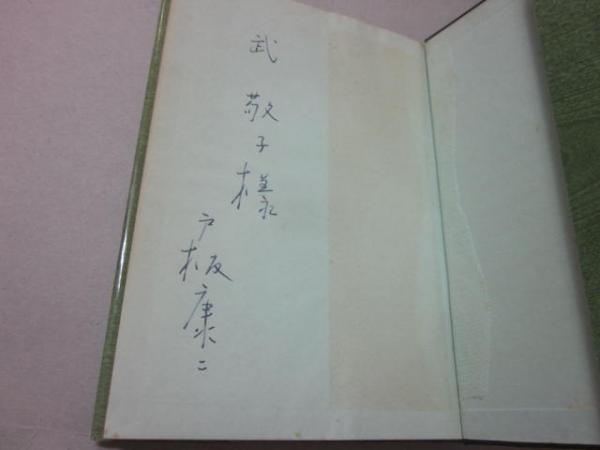 武 敬子様
戸板康二